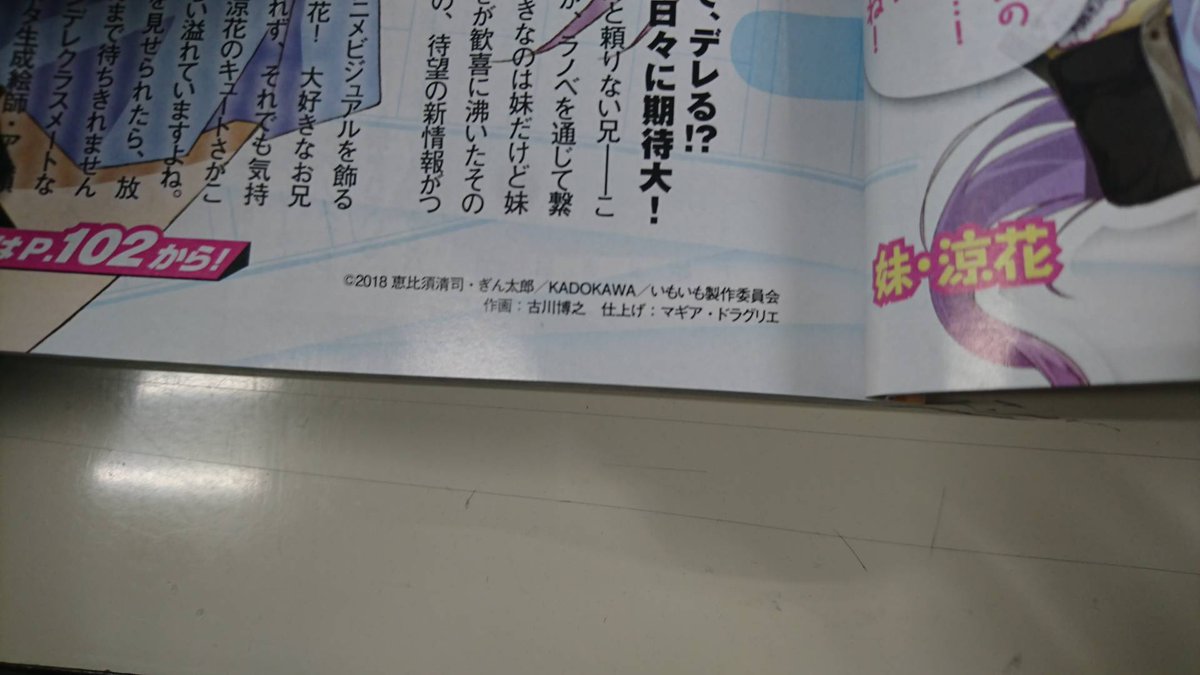 の
…！
ね！
妹・涼花
、デレる!?
日々に期待大！
と頼りない兄――こ
、ラノベを通じて繋
きなのは妹だけど妹
が歓喜に沸いたその
の、待望の新情報がつ
ニメビジュアルを飾る
花！　大好きなお兄
れず、それでも気持
涼花のキュートさがこ
い溢れていますよね。
を見せられたら、放
まで待ちきれません
デレクラスメートな
タ生成絵師・ア
はP.102から！
©2018 恵比須清司・ぎん太郎／KADOKAWA／いもいも製作委員会
作画：古川博之　仕上げ：マギア・ドラグリエ